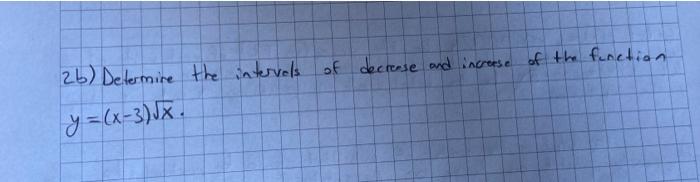 2b) Determine the intervals of decrease and increase of the function
y = (x-3)√x.